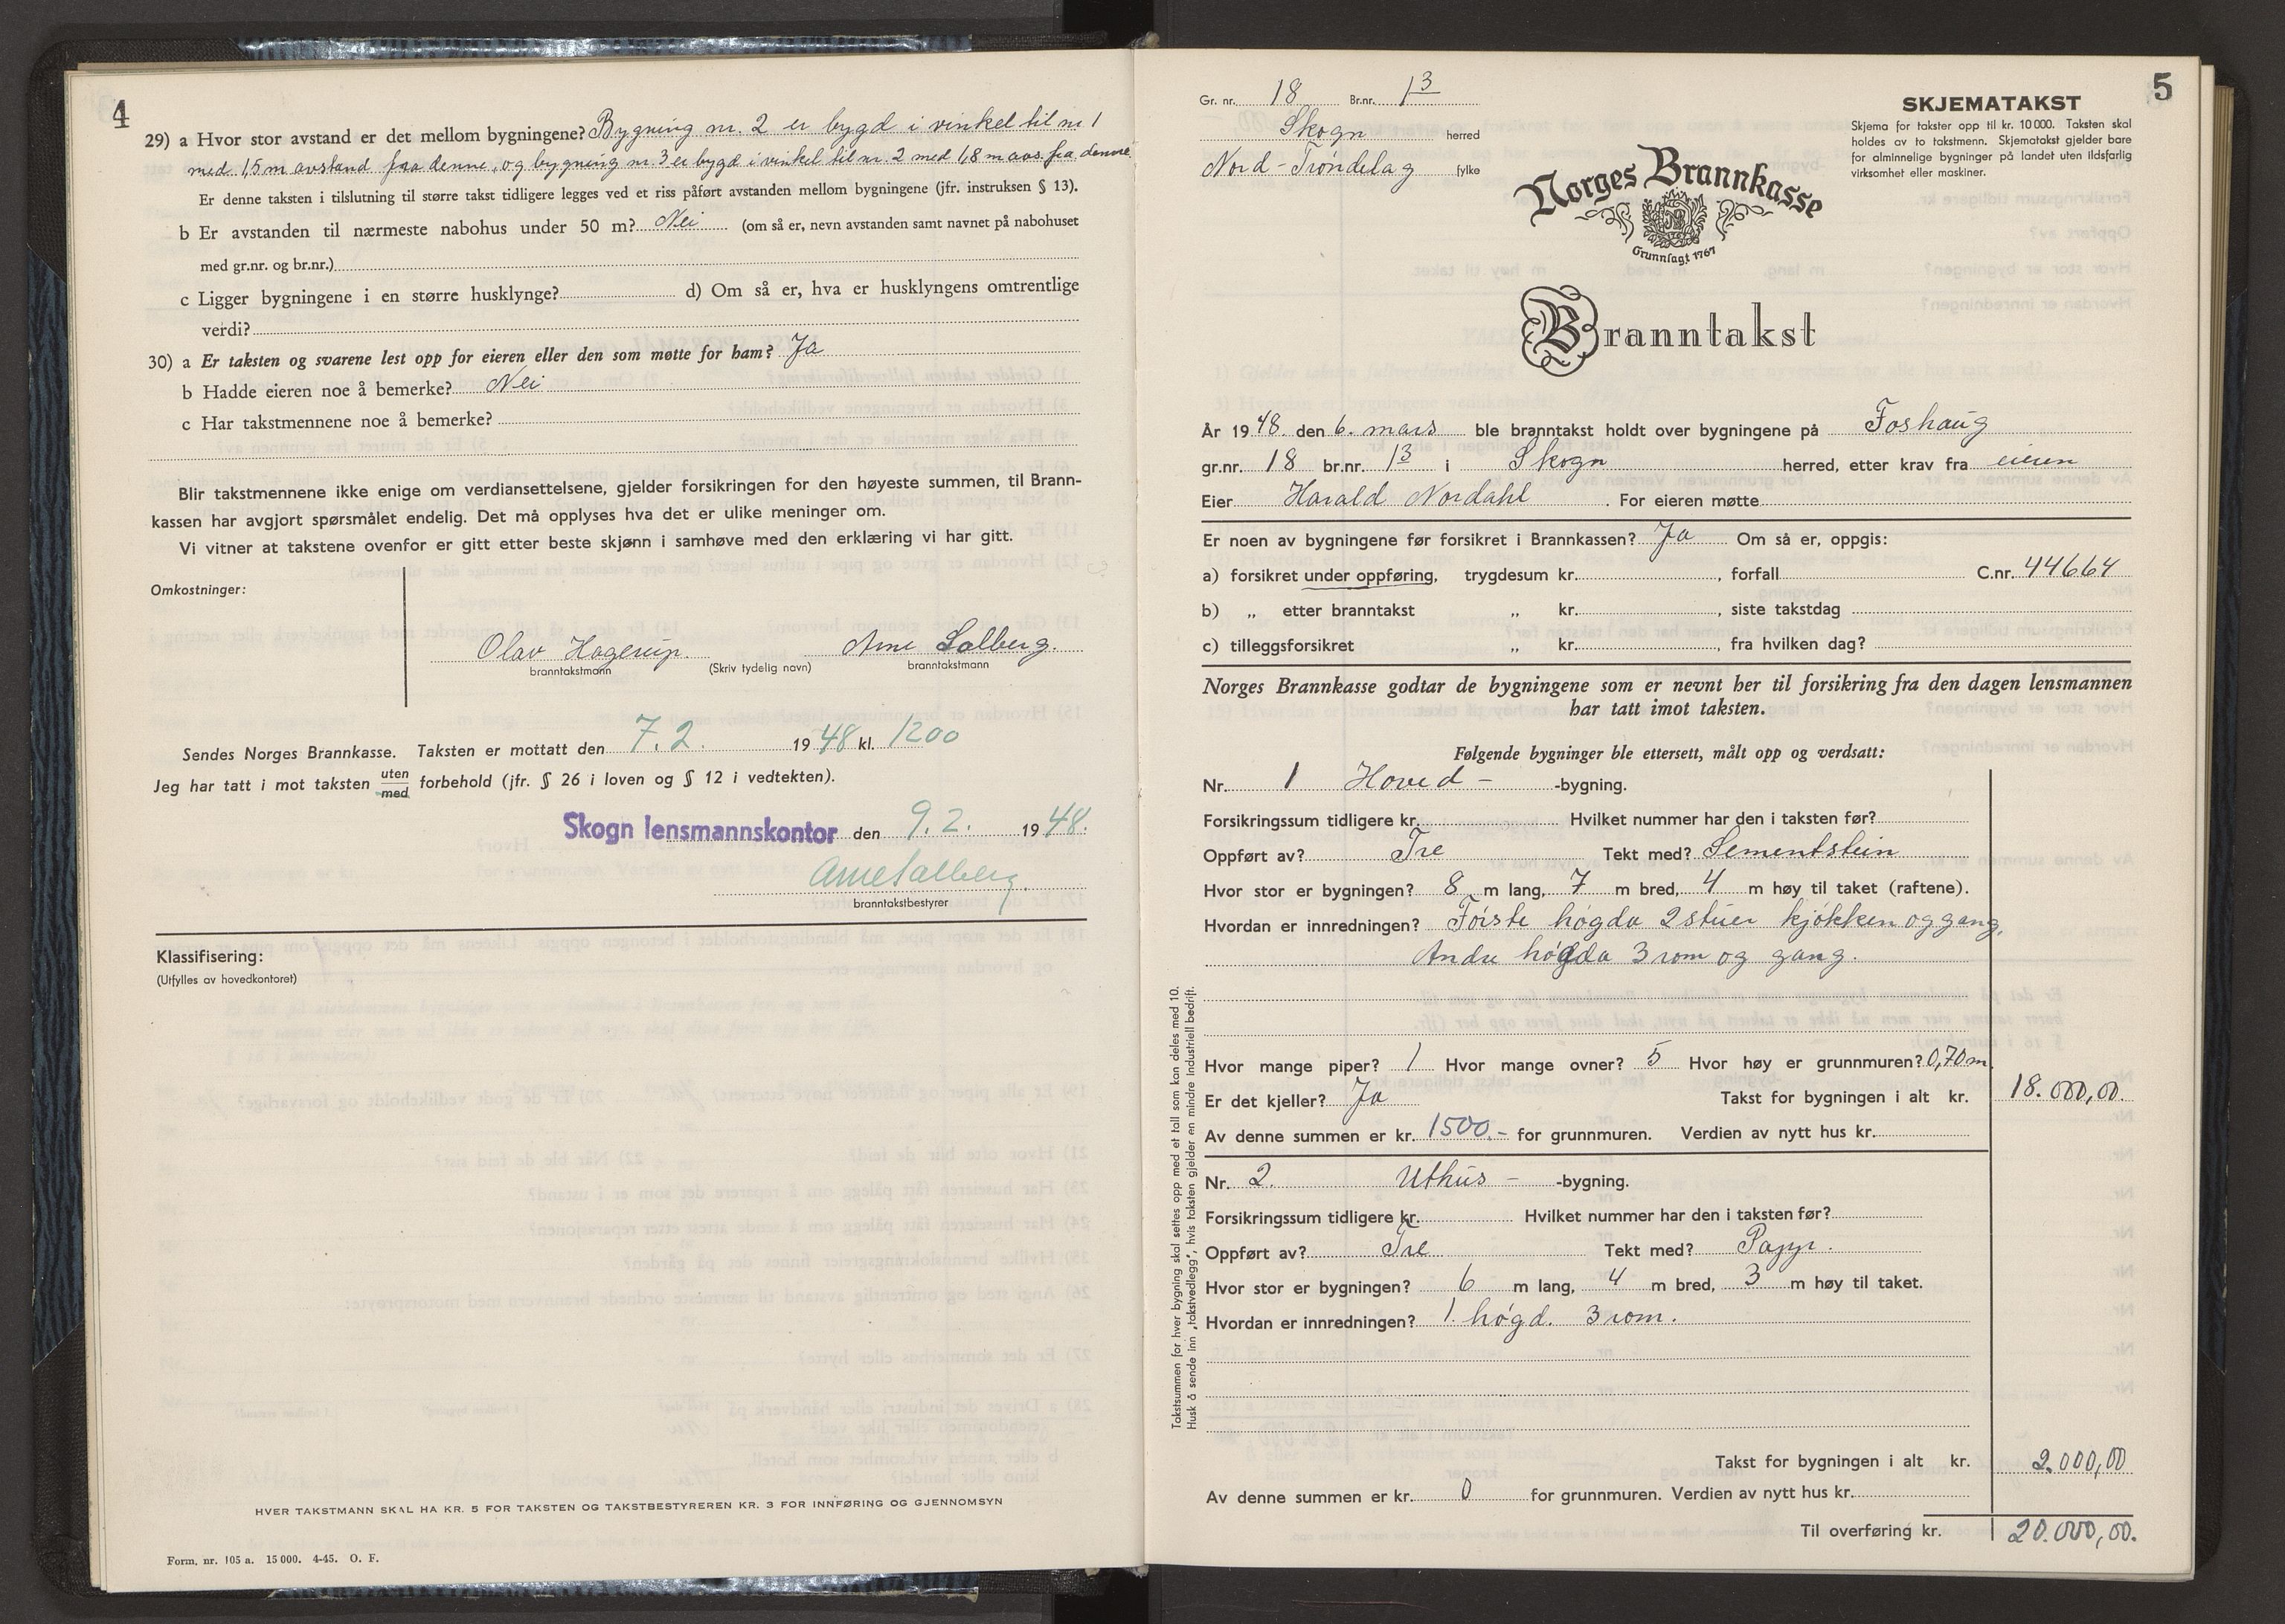 4
29) a Hvor stor avstand er det mellom bygningene? Bygning nr. 2 er bygd i vinkel til nr 1
med 15 m avstand fra denne, og bygning nr. 3 er bygd i vinkel til nr. 2 med 18 m avs. fra denne
Er denne taksten i tilslutning til større takst tidligere legges ved et riss påført avstanden mellom bygningene (jfr. instruksen § 13).
b Er avstanden til nærmeste nabohus under 50 m? Nei (om så er, nevn avstanden samt navnet på nabohuset
med gr.nr. og br.nr.)
c Ligger bygningene i en større husklynge? d) Om så er, hva er husklyngens omtrentlige
verdi?
30) a Er taksten og svarene lest opp for eieren eller den som møtte for ham? Ja
b Hadde eieren noe å bemerke? Nei
c Har takstmennene noe å bemerke?
Blir takstmennene ikke enige om verdiansettelsene, gjelder forsikringen for den høyeste summen, til Brann-
kassen har avgjort spørsmålet endelig. Det må opplyses hva det er ulike meninger om.
Vi vitner at takstene ovenfor er gitt etter beste skjønn i samhøve med den erklæring vi har gitt.
Omkostninger:
Olav Hagerup. Arne Salberg.
branntakstmann (Skriv tydelig navn) branntakstmann
Sendes Norges Brannkasse. Taksten er mottatt den 7.2. 1948 kl. 1200
Jeg har tatt i mot taksten uten
med forbehold (jfr. § 26 i loven og § 12 i vedtekten).
Skogn lensmannskontor den 9.2. 1948.
Arne Salberg
branntakstbestyrer
Klassifisering:
(Utfylles av hovedkontoret)
HVER TAKSTMANN SKAL HA KR. 5 FOR TAKSTEN OG TAKSTBESTYREREN KR. 3 FOR INNFØRING OG GJENNOMSYN
Form. nr. 105 a. 15 000. 4-45. O. F.
5
Gr. nr. 18 Br.nr. 13
Skogn herred
Nord-Trøndelag fylke
SKJEMATAKST
Skjema for takster opp til kr. 10 000. Taksten skal
holdes av to takstmenn. Skjematakst gjelder bare
for alminnelige bygninger på landet uten ildsfarlig
virksomhet eller maskiner.
Norges Brannkasse
Grunnlagt 1767
Branntakst
År 1948. den 6. mars ble branntakst holdt over bygningene på Foshaug
gr.nr. 18 br.nr. 13 i Skogn herred, etter krav fra eieren
Eier Harald Nordahl. For eieren møtte
Er noen av bygningene før forsikret i Brannkassen? Ja Om så er, oppgis:
a) forsikret under oppføring, trygdesum kr. , forfall C.nr. 44664
b) „ etter branntakst „ kr. , siste takstdag
c) tilleggsforsikret „ kr. , fra hvilken dag?
Norges Brannkasse godtar de bygningene som er nevnt her til forsikring fra den dagen lensmannen
har tatt imot taksten.
Følgende bygninger ble ettersett, målt opp og verdsatt:
Nr. 1 Hoved- -bygning.
Forsikringssum tidligere kr. Hvilket nummer har den i taksten før?
Oppført av? Tre Tekt med? Sementstein
Hvor stor er bygningen? 8 m lang, 7 m bred, 4 m høy til taket (raftene).
Hvordan er innredningen? Første høgda 2 stuer kjøkken og gang,
Andre høgda 3 rom og gang.
Hvor mange piper? 1 Hvor mange ovner? 5 Hvor høy er grunnmuren? 0,70 m.
Er det kjeller? Ja Takst for bygningen i alt kr. 18.000,00.
Av denne summen er kr. 1500.- for grunnmuren. Verdien av nytt hus kr.
Nr. 2. Uthus - -bygning.
Forsikringssum tidligere kr. Hvilket nummer har den i taksten før?
Oppført av? Tre Tekt med? Papp.
Hvor stor er bygningen? 6 m lang, 4 m bred, 3 m høy til taket.
Hvordan er innredningen? 1. høgd. 3 rom.
Takst for bygningen i alt kr. 2.000,00
Av denne summen er kr. 0 for grunnmuren. Verdien av nytt hus kr.
Til overføring kr. 20.000,00.
Takstsummen for hver bygning skal settes opp med et tall som kan deles med 10.
Husk å sende inn „takstvedlegg”, hvis taksten gjelder en mindre industriell bedrift.